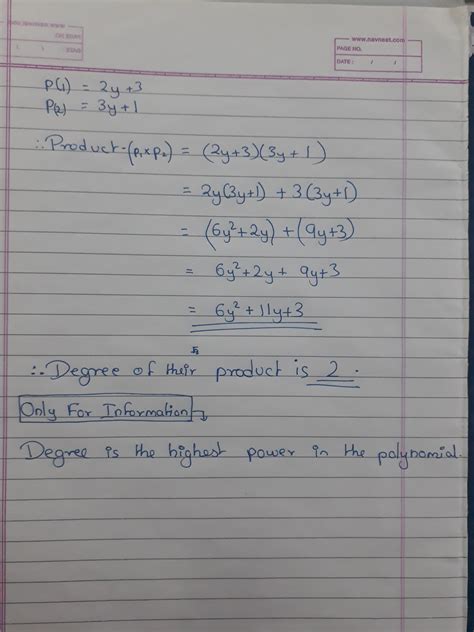 www.navneet.com
PAGE NO.
DATE: / /
P(1) = 2y+3
P(2) = 3y+1
∴ Product-(p₁×p₂) = (2y+3)(3y+1)
= 2y(3y+1) + 3(3y+1)
= (6y²+2y) + (9y+3)
= 6y²+2y+ 9y+3
= 6y²+11y+3
∴ Degree of their product is 2.
Only For Information
Degree is the highest power in the polynomial.